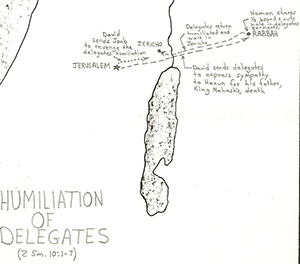 Hanun shaves
½ beard & cuts
hole in delegates
garments
RABBAH
Delegates return
humiliated and
wait in
Jericho
David
sends Joab
to revenge the
delegates humiliation
JERICHO
JERUSALEM
David sends delegates
to express sympathy
to Hanun for his father,
King Nahash's, death
HUMILIATION
OF
DELEGATES
(2 Sm. 10:1-7)